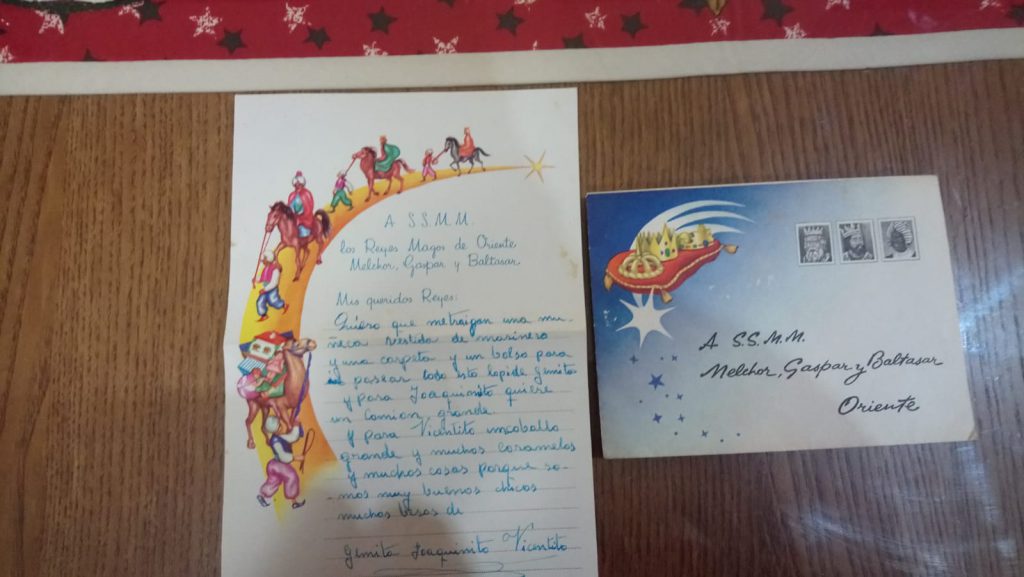 A S.S.M.M.
los Reyes Magos de Oriente
Melchor, Gaspar y Baltasar
Mis queridos Reyes:
Quiero que metraigan una mu-
ñeca vestida de marinero
y una carpeta y un bolso para
pasear todo esto lopide Gemita
y para Joaquinito quiere
un Camion grande.
y para Vicentito uncaballo
grande y muchos caramelos
y muchos cosas porque so-
mos muy buenos chicos
muchos besos de
Gemita Joaquinito Vicentito
A S.S.M.M.
Melchor, Gaspar y Baltasar
Oriente